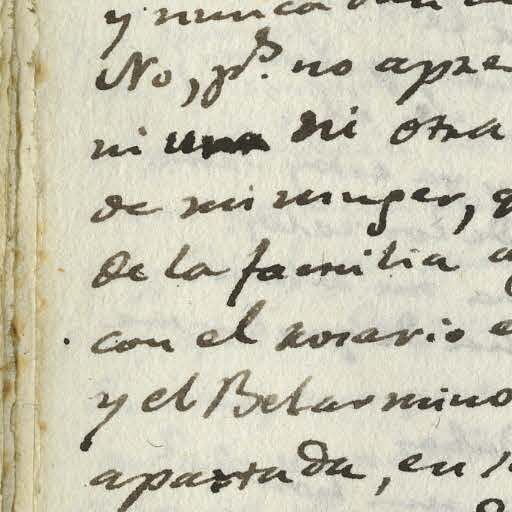 y nunca
No, ps. no apre
ni una ni otra
de mi muger, q
de la familia a
con el rosario e
y el Belarmino
apartada, en